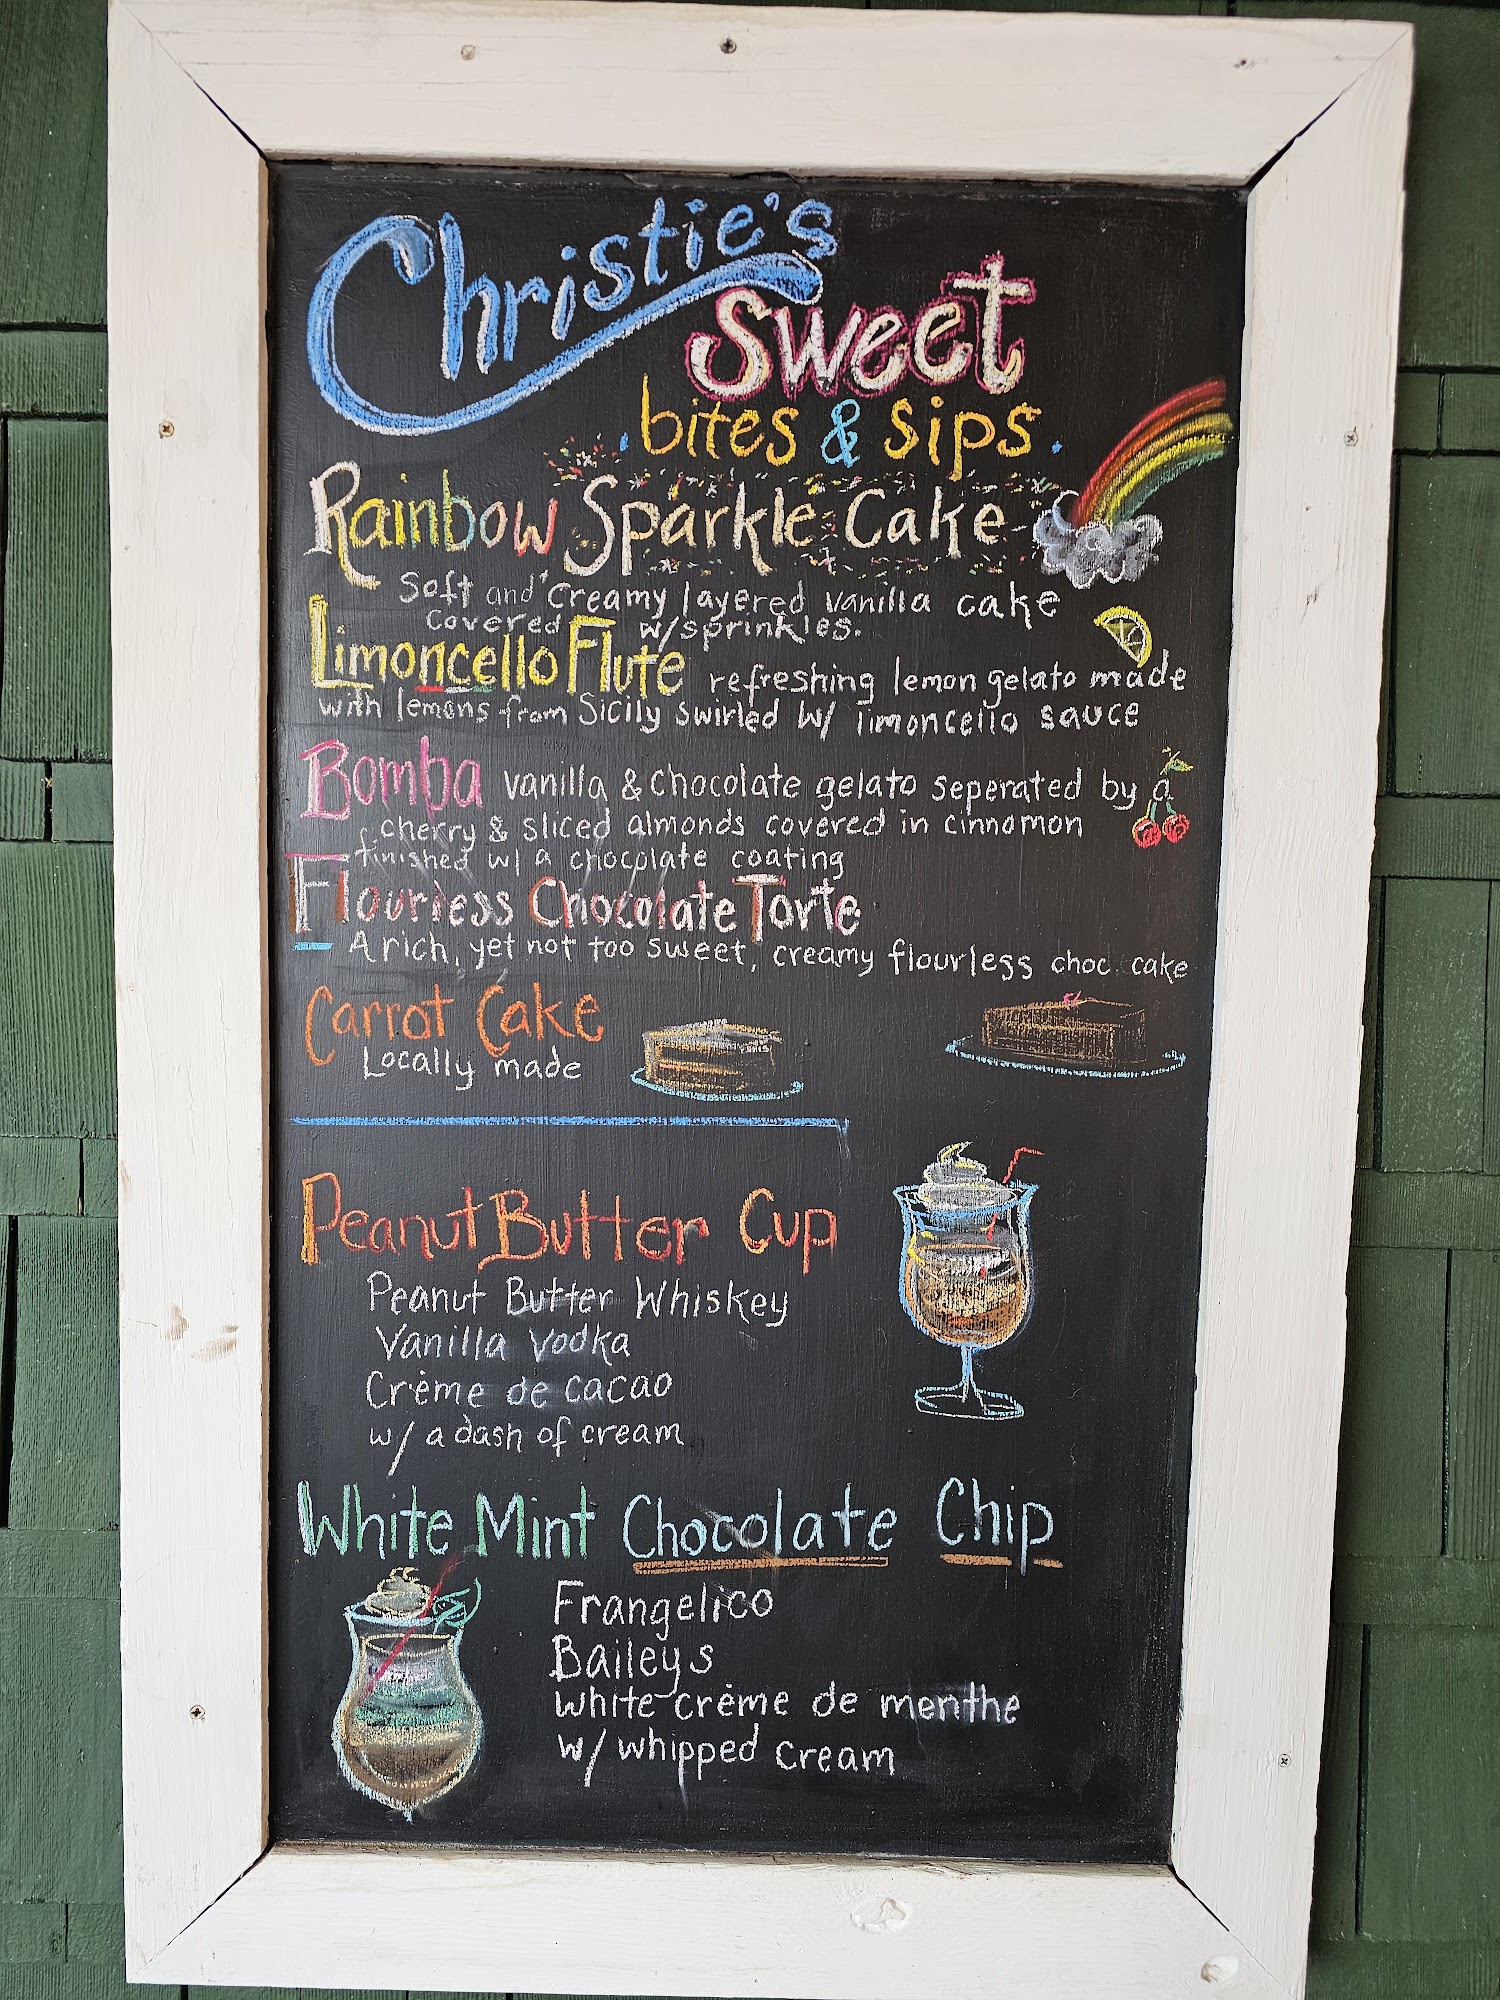 Christie's
Sweet
bites & sips
Rainbow Sparkle Cake
Soft and Creamy layered vanilla cake
covered w/sprinkles.
Limoncello Flute refreshing lemon gelato made
with lemons from Sicily swirled w/ limoncello sauce
Bomba vanilla & chocolate gelato seperated by a
cherry & sliced almonds covered in cinnomon
finished w/ a chocolate coating
Flourless Chocolate Torte
A rich, yet not too sweet, creamy flourless choc cake
Carrot Cake
Locally made
Peanut Butter Cup
Peanut Butter Whiskey
Vanilla Vodka
Crème de cacao
w/ a dash of cream
White Mint Chocolate Chip
Frangelico
Baileys
White crème de menthe
w/ whipped cream